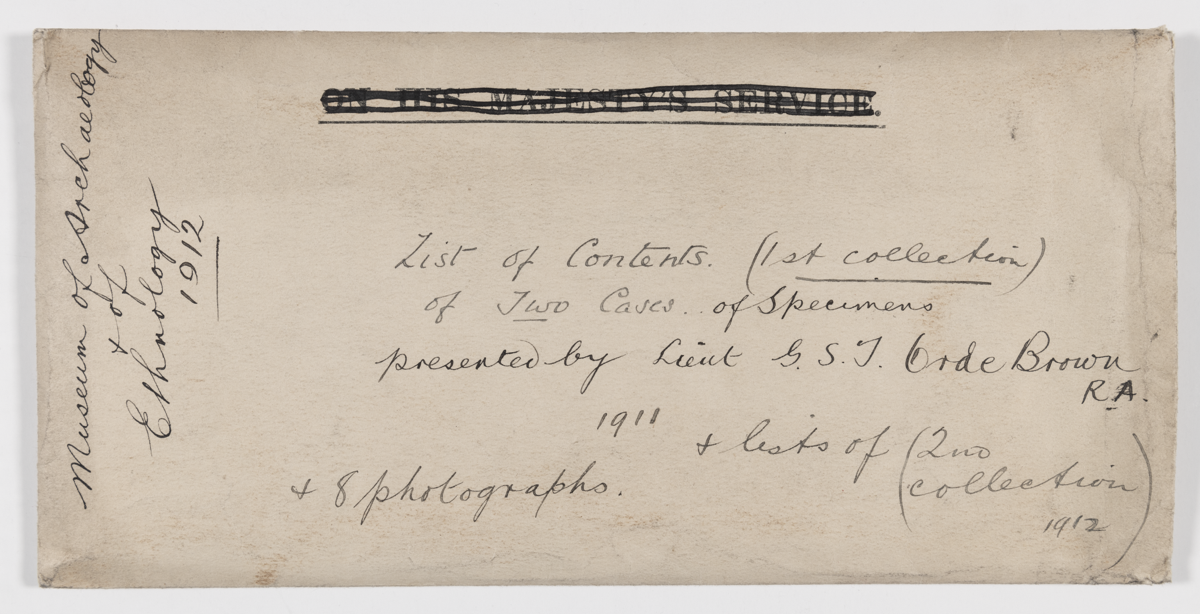 ON HIS MAJESTY'S SERVICE.
Museum of Archaeology
+ of
Ethnology
1912
List of Contents. (1st collection)
of Two Cases.. of Specimens
presented by Lieut G. S. T. Orde Brown
R.A.
1911
+ lists of (2nd
collection
1912)
+ 8 photographs.